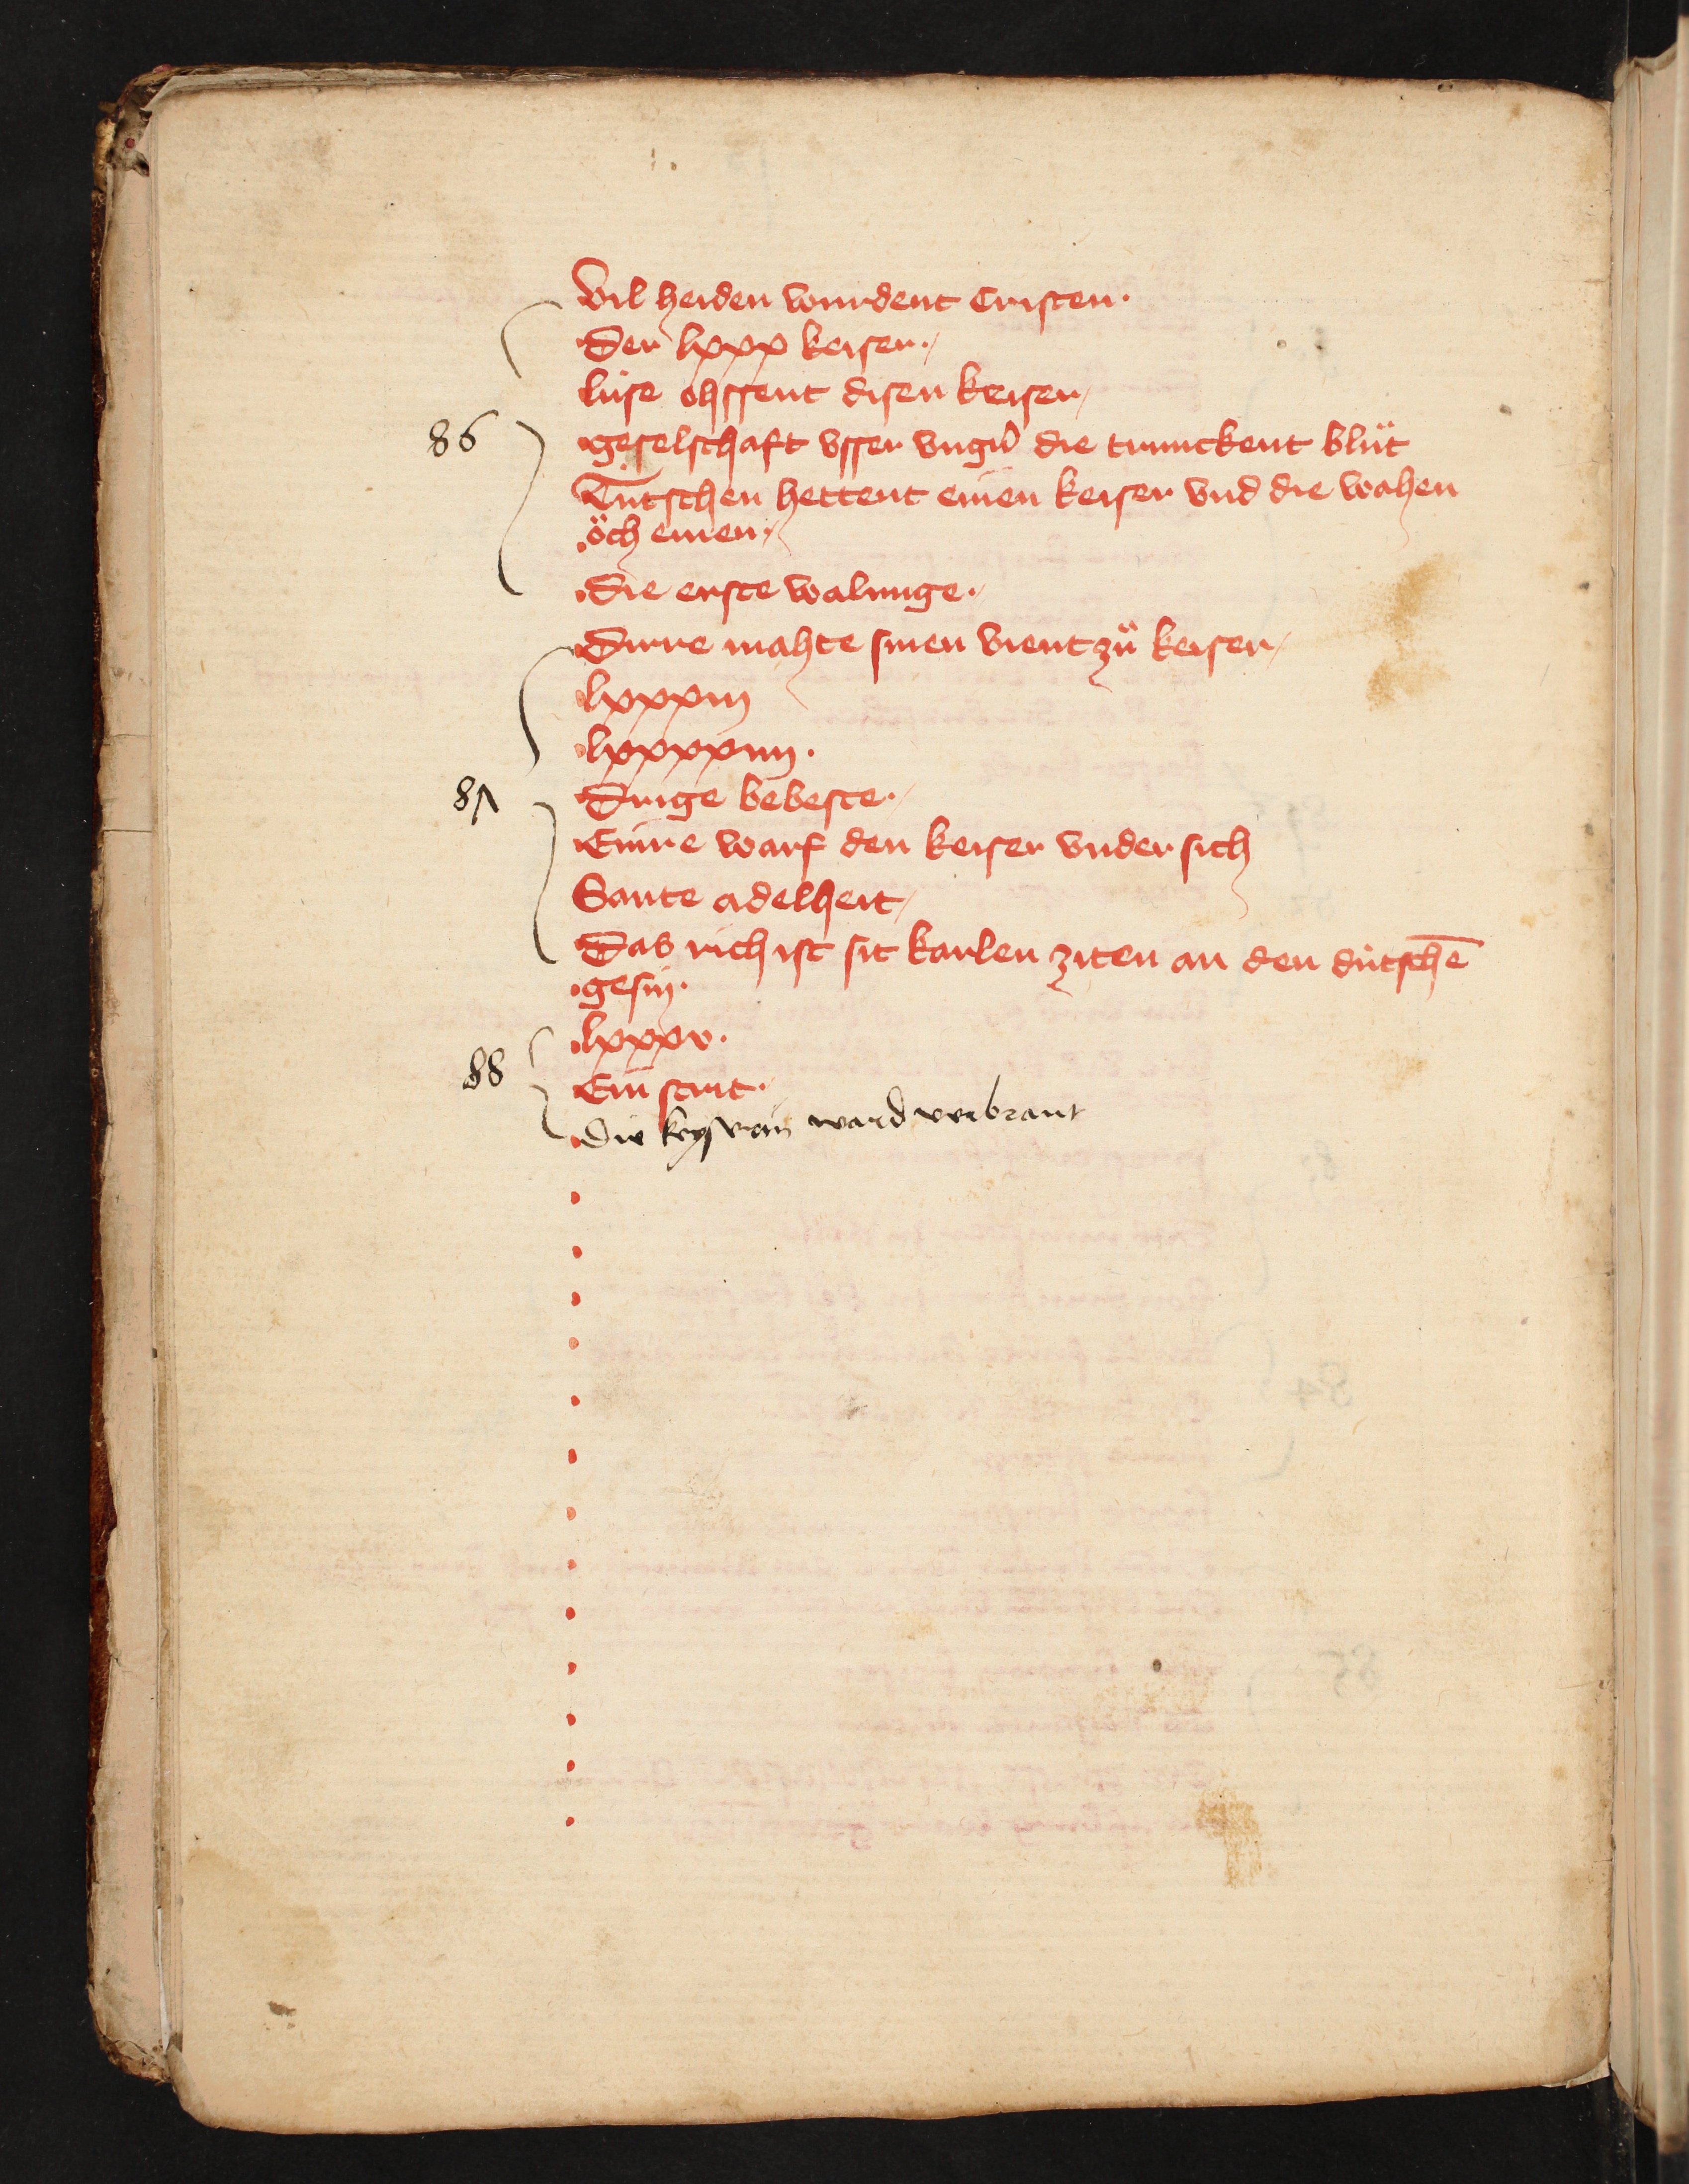 Vil heiden wurdent Cristen.
Der lxxx keiser.
lúse ohssent disen keiser
86
geselschaft vsser vngern die trunckent blůt
Tútschen hettent einen keiser vnd die walhen
öch einen.
Die erste walunge.
Dirre mahte sinen vient zů keiser
lxxxiij
lxxxxiiij.
87
Drige bebeste.
Einre warf den keiser vnder sich
Sante adelheit
Das rich ist sit karlen ziten an den dútschē
gesin.
lxxxv.
88
Ein strit.
Die keyserin ward verbrant